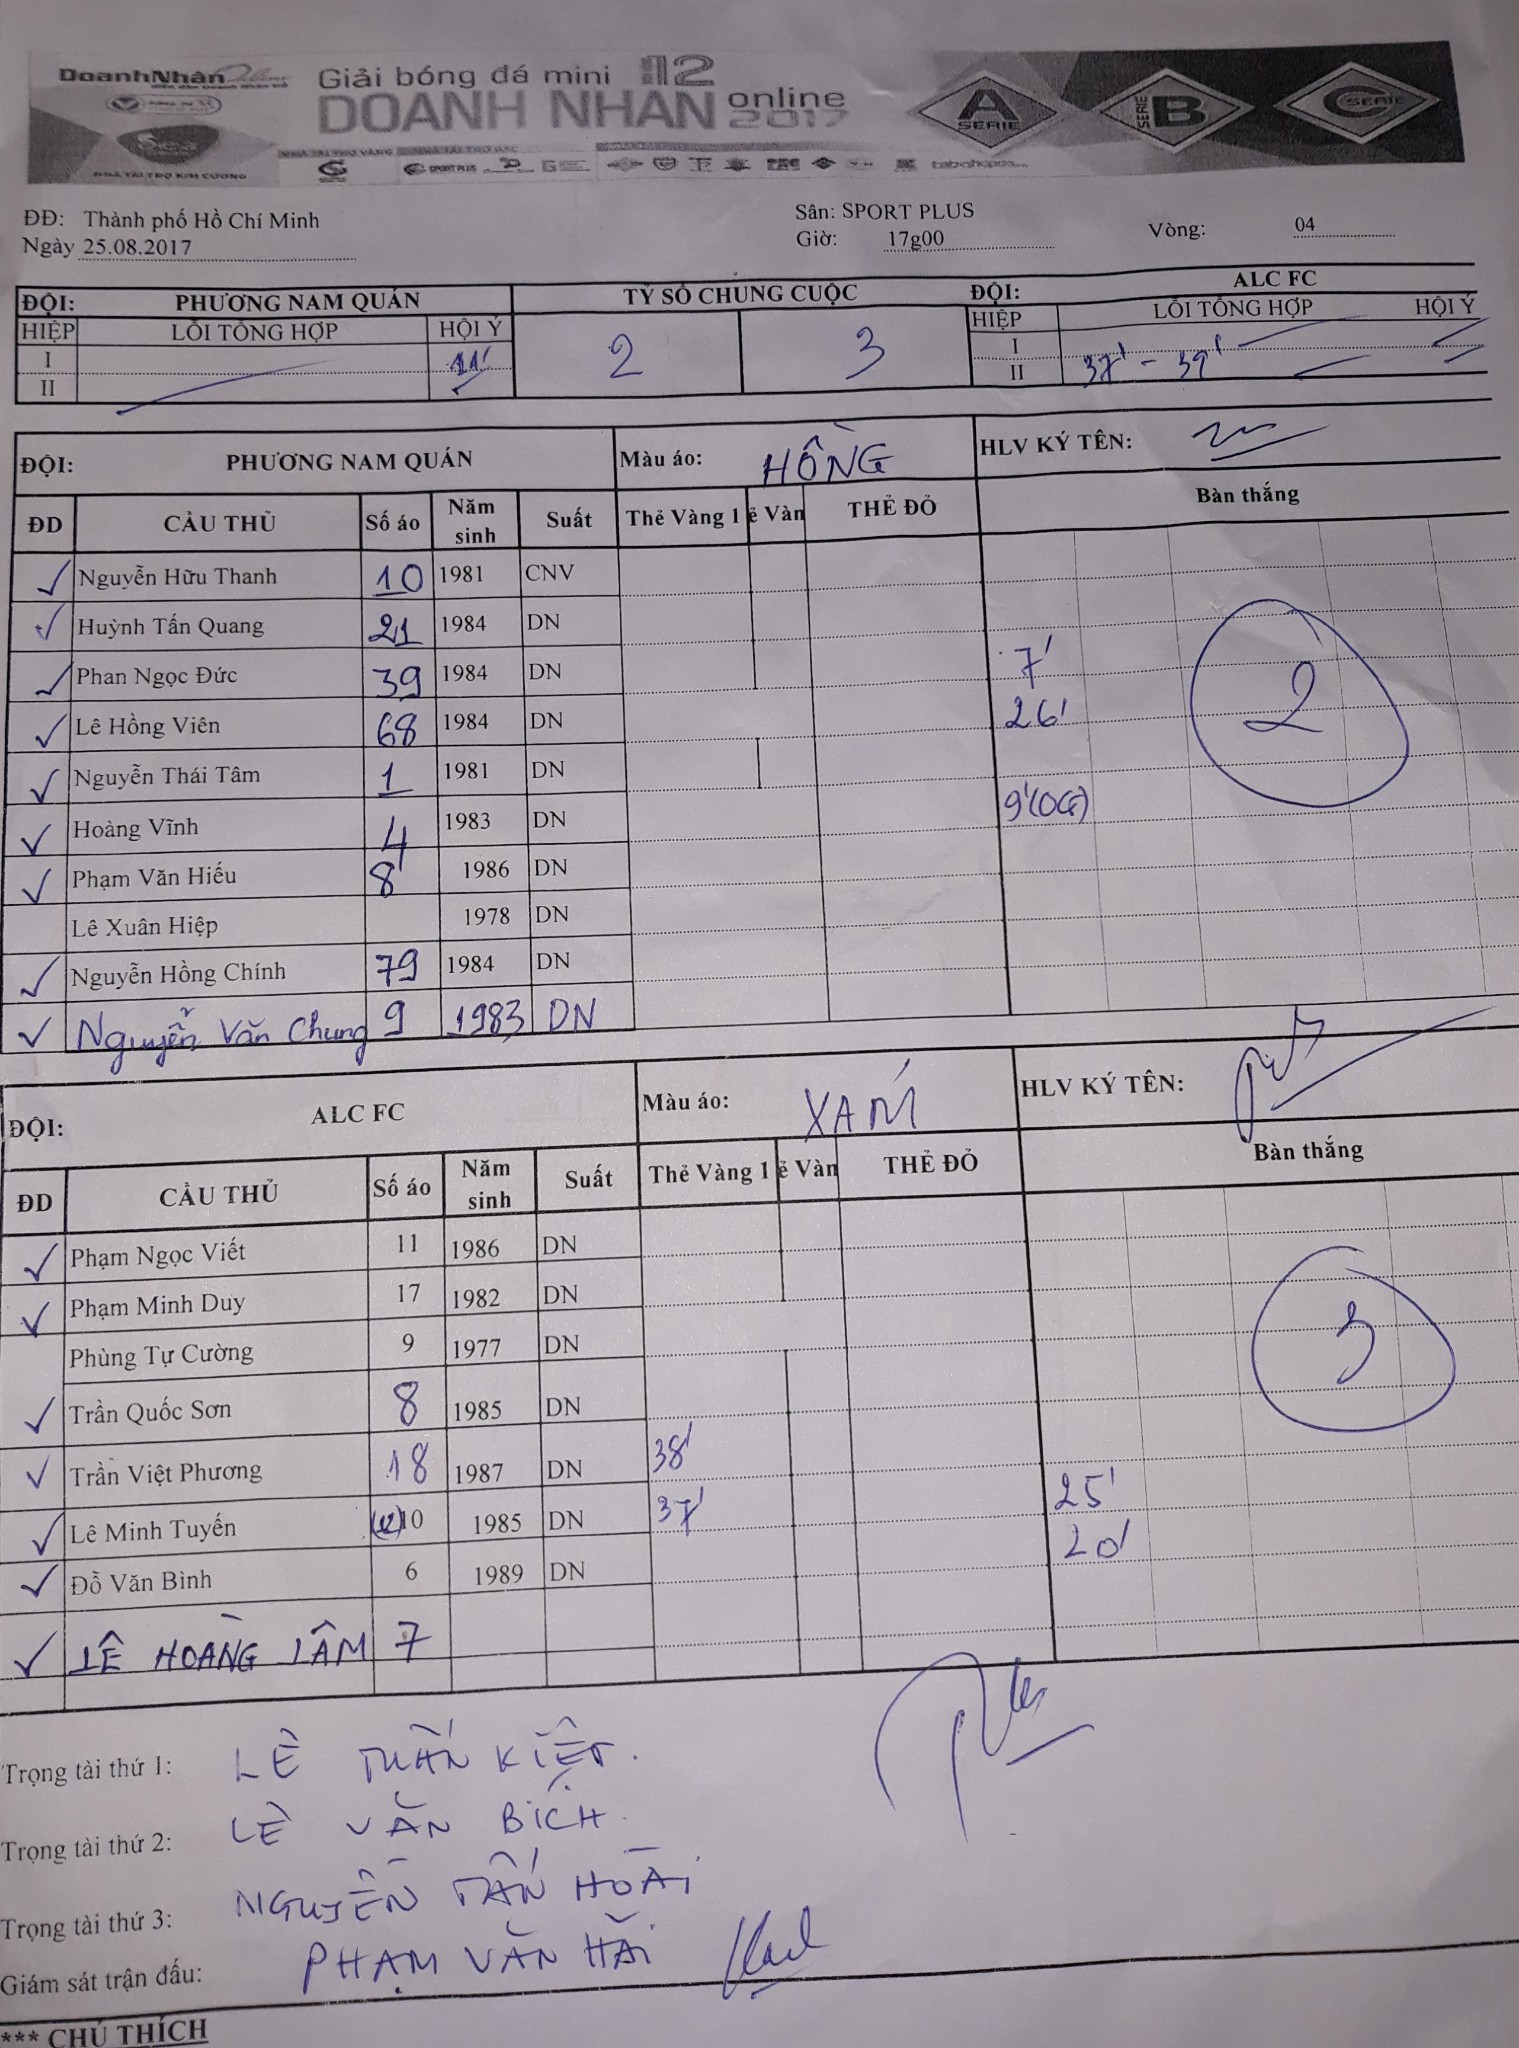 DoanhNhân
Giải bóng đá mini 12
DOANH NHÂN online 2017
SERIE A SERIE B SERIE C
Sea
NHÀ TÀI TRỢ KIM CƯƠNG
NHÀ TÀI TRỢ VÀNG
SPORT PLUS
ĐĐ: Thành phố Hồ Chí Minh Sân: SPORT PLUS
Ngày 25.08.2017 Giờ: 17g00 Vòng: 04
ĐỘI: PHƯƠNG NAM QUÁN TỶ SỐ CHUNG CUỘC ĐỘI: ALC FC
HIỆP LỖI TỔNG HỢP HỘI Ý 2 3 HIỆP LỖI TỔNG HỢP HỘI Ý
I 11' I
II II 37' - 39'
ĐỘI: PHƯƠNG NAM QUÁN Màu áo: HỒNG HLV KÝ TÊN:
ĐD CẦU THỦ Số áo Năm sinh Suất Thẻ Vàng 1 ẻ Vàn THẺ ĐỎ Bàn thắng
✓ Nguyễn Hữu Thanh 10 1981 CNV
✓ Huỳnh Tấn Quang 21 1984 DN
✓ Phan Ngọc Đức 39 1984 DN 7'
✓ Lê Hồng Viên 68 1984 DN 26' 2
✓ Nguyễn Thái Tâm 1 1981 DN
✓ Hoàng Vĩnh 4 1983 DN 9'(OG)
✓ Phạm Văn Hiếu 8 1986 DN
Lê Xuân Hiệp 1978 DN
✓ Nguyễn Hồng Chính 79 1984 DN
✓ Nguyễn Văn Chung 9 1983 DN
ĐỘI: ALC FC Màu áo: XÁM HLV KÝ TÊN:
ĐD CẦU THỦ Số áo Năm sinh Suất Thẻ Vàng 1 ẻ Vàn THẺ ĐỎ Bàn thắng
✓ Phạm Ngọc Viết 11 1986 DN
✓ Phạm Minh Duy 17 1982 DN
Phùng Tự Cường 9 1977 DN 3
✓ Trần Quốc Sơn 8 1985 DN
✓ Trần Việt Phương 18 1987 DN 38'
✓ Lê Minh Tuyến (12) 10 1985 DN 37' 25'
✓ Đỗ Văn Bình 6 1989 DN 20'
✓ LÊ HOÀNG LÂM 7
Trọng tài thứ 1: LÊ TUẤN KIỆT.
Trọng tài thứ 2: LÊ VĂN BÍCH.
Trọng tài thứ 3: NGUYỄN TẤN HOÀI
Giám sát trận đấu: PHẠM VĂN HẢI
*** CHÚ THÍCH